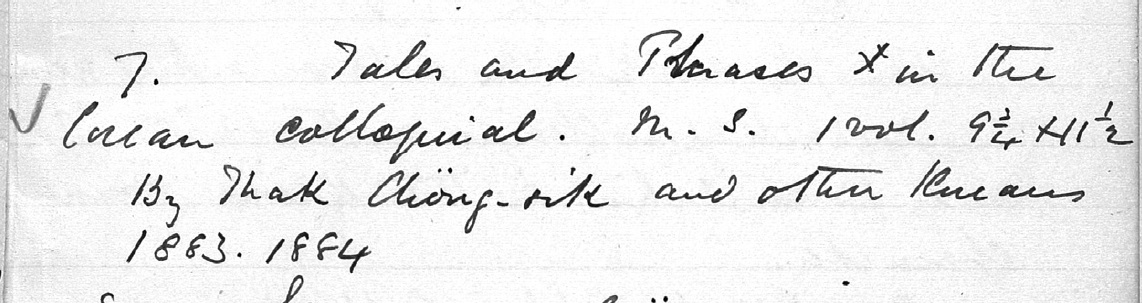 7. Tales and Phrases x in the
Corean colloquial. M. S. 1 vol. 9¾ x 11½
By Thak Chiöng-sik and other Kneans
1883. 1884